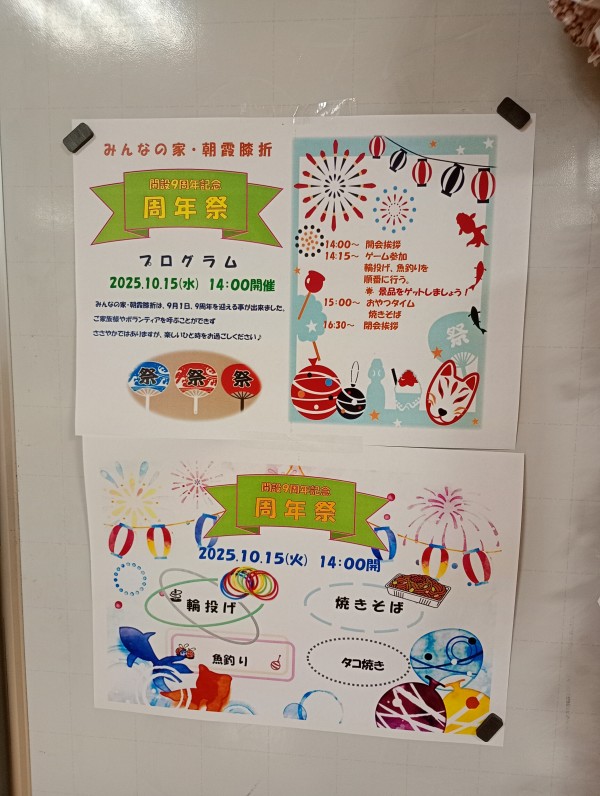 みんなの家・朝霞膝折
開設9周年記念
周年祭
プログラム
2025.10.15(水) 14:00開催
みんなの家・朝霞膝折は、9月1日、9周年を迎える事が出来ました。
ご家族様やボランティアを呼ぶことができず
ささやかではありますが、楽しいひと時をお過ごしください♪
祭 祭 祭
14:00～ 開会挨拶
14:15～ ゲーム参加
輪投げ、魚釣りを
順番に行う。
※ 景品をゲットしましょう!
15:00～ おやつタイム
焼きそば
16:30～ 閉会挨拶
祭
開設9周年記念
周年祭
2025.10.15(火) 14:00開
輪投げ
焼きそば
魚釣り
タコ焼き